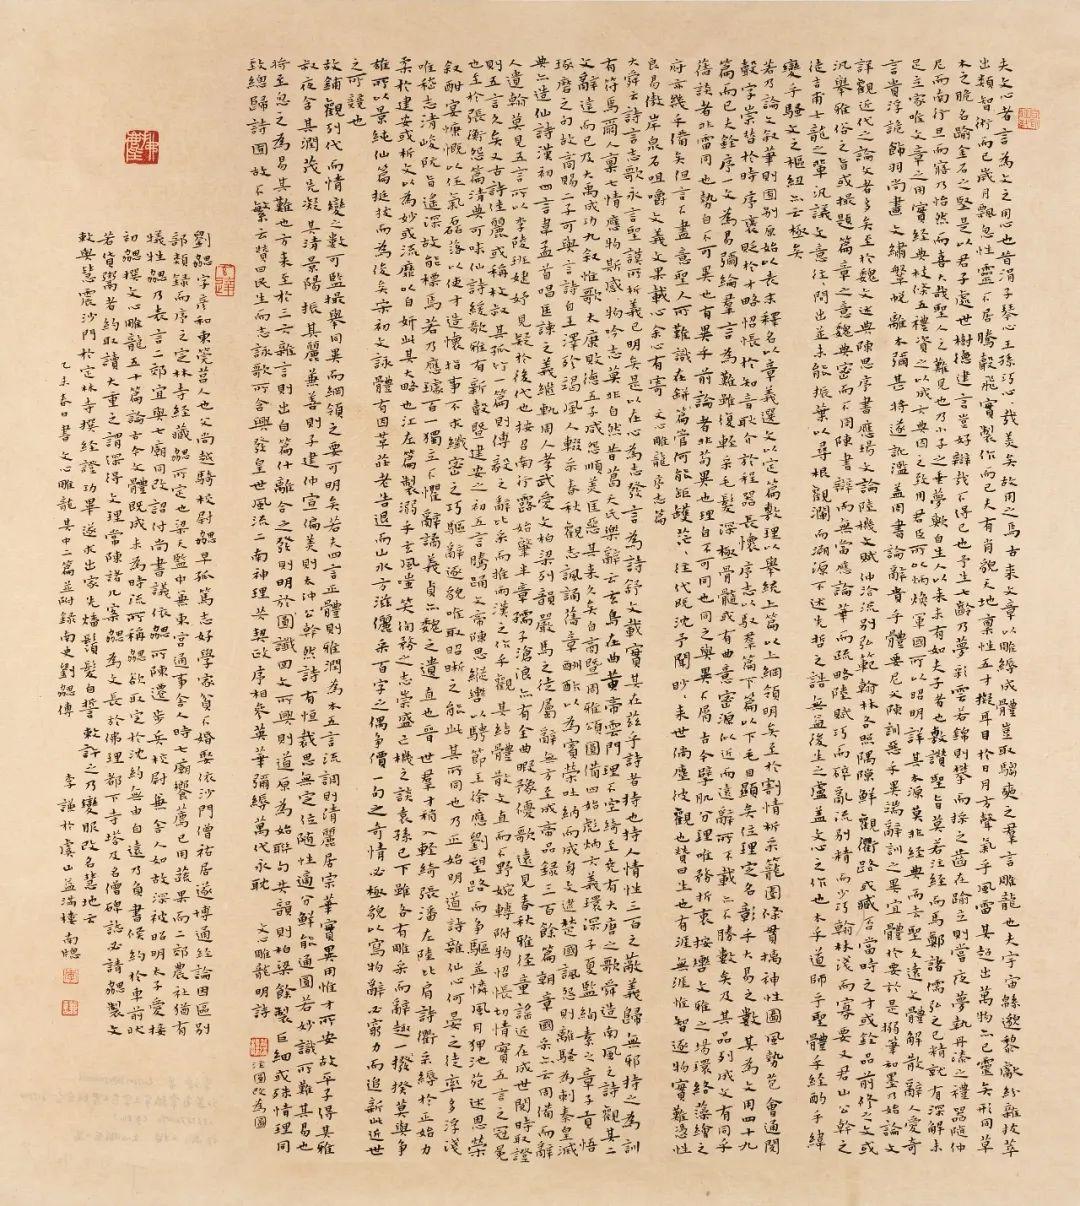 夫文心者言為文之用心也昔涓子琴心王孫巧心哉美矣故用之焉古來文章以雕縟成體豈取騶奭之羣言雕龍也夫宇宙緜邈黎獻紛雜拔萃
出類智術而已歲月飄忽性靈不居騰聲飛實製作而已夫有肖貌天地稟性五才擬耳目於日月方聲氣乎風雷其超出萬物亦已靈矣形同草
木之脆名踰金石之堅是以君子處世樹德建言豈好辯哉不得已也予生七齡乃夢彩雲若錦則攀而採之齒在踰立則嘗夜夢執丹漆之禮器隨仲
尼而南行旦而寤乃怡然而喜大哉聖人之難見也乃小子之垂夢歟自生人以來未有如夫子者也敷讚聖旨莫若注經而馬鄭諸儒弘之已精就有深解未
足立家唯文章之用實經典枝條五禮資之以成六典因之致用君臣所以炳煥軍國所以昭明詳其本源莫非經典而去聖久遠文體解散辭人愛奇
言貴浮詭飾羽尚畫文繡鞶帨離本彌甚將遂訛濫蓋周書論辭貴乎體要尼父陳訓惡乎異端辭訓之異宜體於要於是搦筆和墨乃始論文
詳觀近代之論文者多矣至於魏文述典陳思序書應瑒文論陸機文賦仲洽流別弘範翰林各照隅隙鮮觀衢路或臧否當時之才或銓品前修之文或
汎舉雅俗之旨或撮題篇章之意魏典密而不周陳書辯而無當應論華而疏略陸賦巧而碎亂流別精而少巧翰林淺而寡要又君山公幹之
徒吉甫士龍之輩汎議文意往往間出並未能振葉以尋根觀瀾而溯源不述先哲之誥無益後生之慮蓋文心之作也本乎道師乎聖體乎經酌乎緯
變乎騷文之樞紐亦云極矣
若乃論文叙筆則囿別原始以表末釋名以章義選文以定篇敷理以舉統上篇以上綱領明矣至於割情析采籠圈條貫摛神性圖風勢苞會通閱
聲字崇替於時序褒貶於才略怊悵於知音耿介於程器長懷序志以馭羣篇下篇以下毛目顯矣位理定名彰乎大易之數其為文用四十九
篇而已夫銓序一文為易彌綸羣言為難雖復輕采毛髮深極骨髓或有曲意密源似近而遠辭所不載亦不勝數矣及其品列成文有同乎
舊談者非雷同也勢自不可異也有異乎前論者非苟異也理自不可同也同之與異不屑古今擘肌分理唯務折衷按轡文雅之場環絡藻繪之
府亦幾乎備矣但言不盡意聖人所難識在缾管何能矩矱茫茫往代既沈予聞眇眇來世倘塵彼觀也贊曰生也有涯無涯惟智逐物實難憑性
良易傲岸泉石咀嚼文義文果載心余心有寄 文心雕龍序志篇
大舜云詩言志歌永言聖謨所析義已明矣是以在心為志發言為詩舒文載實其在茲乎詩者持也持人情性三百之蔽義歸無邪持之為訓
有符焉爾人稟七情應物斯感感物吟志莫非自然昔葛天氏樂辭云玄鳥在曲黃帝雲門理不空綺至堯有大唐之歌舜造南風之詩觀其二
文辭達而已及大禹成功九叙惟歌太康敗德五子咸怨順美匡惡其來久矣自商暨周雅頌圓備四始彪炳六義環深子夏監絢素之章子貢悟
琢磨之句故商賜二子可與言詩自王澤殄竭風人輟采春秋觀志諷誦舊章酬酢以為賓榮吐納而成身文逮楚國諷怨則離騷為刺秦皇滅
典亦造仙詩漢初四言韋孟首唱匡諫之義繼軌周人孝武愛文柏梁列韻嚴馬之徒屬辭無方至成帝品錄三百餘篇朝章國采亦云周備而辭
人遺翰莫見五言所以李陵班婕妤見疑於後代也按召南行露始肇半章孺子滄浪亦有全曲暇豫優歌遠見春秋邪徑童謠近在成世閱時取證
則五言久矣又古詩佳麗或稱枚叔其孤竹一篇則傅毅之辭比采而推兩漢之作乎觀其結體散文直而不野婉轉附物怊悵切情實五言之冠冕
也至於張衡怨篇清典可味仙詩緩歌雅有新聲暨建安之初五言騰踴文帝陳思縱轡以騁節王徐應劉望路而爭驅並憐風月狎池苑述恩榮
叙酣宴慷慨以任氣磊落以使才造懷指事不求纖密之巧驅辭逐貌唯取昭晰之能此其所同也乃正始明道詩雜仙心何晏之徒率多浮淺
唯嵇志清峻阮旨遙深故能標焉若乃應璩百一獨立不懼辭譎義貞亦魏之遺直也晉世羣才稍入輕綺張潘左陸比肩詩衢采縟於正始力
柔於建安或析文以為妙或流靡以自妍此其大略也江左篇製溺乎玄風嗤笑徇務之志崇盛亡機之談袁孫已下雖各有雕采而辭趣一揆莫與爭
雄所以景純仙篇挺拔而為俊矣宋初文詠體有因革莊老告退而山水方滋儷采百字之偶爭價一句之奇情必極貌以寫物辭必窮力而追新此近世
之所競也
故鋪觀列代而情變之數可監撮舉同異而綱領之要可明矣若夫四言正體則雅潤為本五言流調則清麗居宗華實異用惟才所安故平子得其雅
叔夜含其潤茂先凝其清景陽振其麗兼善則子建仲宣偏美則太沖公幹然詩有恒裁思無定位隨性適分鮮能通圓若妙識所難其易也
將至忽之為易其難也方來至於三六雜言則出自篇什離合之發則明於圖讖回文所興則道原為始聯句共韻則柏梁餘製巨細或殊情理同
致總歸詩囿故不繁云贊曰民生而志詠歌所含興發皇世風流二南神理共契政序相參英華彌縟萬代永耽 文心雕龍明詩 注圖改為圓
劉勰字彥和東莞莒人也父尚越騎校尉勰早孤篤志好學家貧不婚娶依沙門僧祐居遂博通經論因區別
部類錄而序之定林寺經藏勰所定也梁天監中兼東宮通事舍人時七廟饗薦已用蔬果而二郊農社猶有
犧牲勰乃表言二郊宜與七廟同改詔付尚書議依勰所陳遷步兵校尉兼舍人如故深被昭明太子愛接
初勰撰文心雕龍五十篇論古今文體既成未為時流所稱勰欲取定於沈約無由自達乃負書候約於車前狀
若貨鬻者約取讀大重之謂深得文理常陳諸几案勰為文長於佛理都下寺塔及名僧碑誌必請勰製文
敕與慧震沙門於定林寺撰經證功畢遂求出家先燔鬚髮自誓敕許之乃變服改名慧地云
乙未春日書文心雕龍其中二篇並附錄南史劉勰傳 李謹於虞山益滿樓南牕